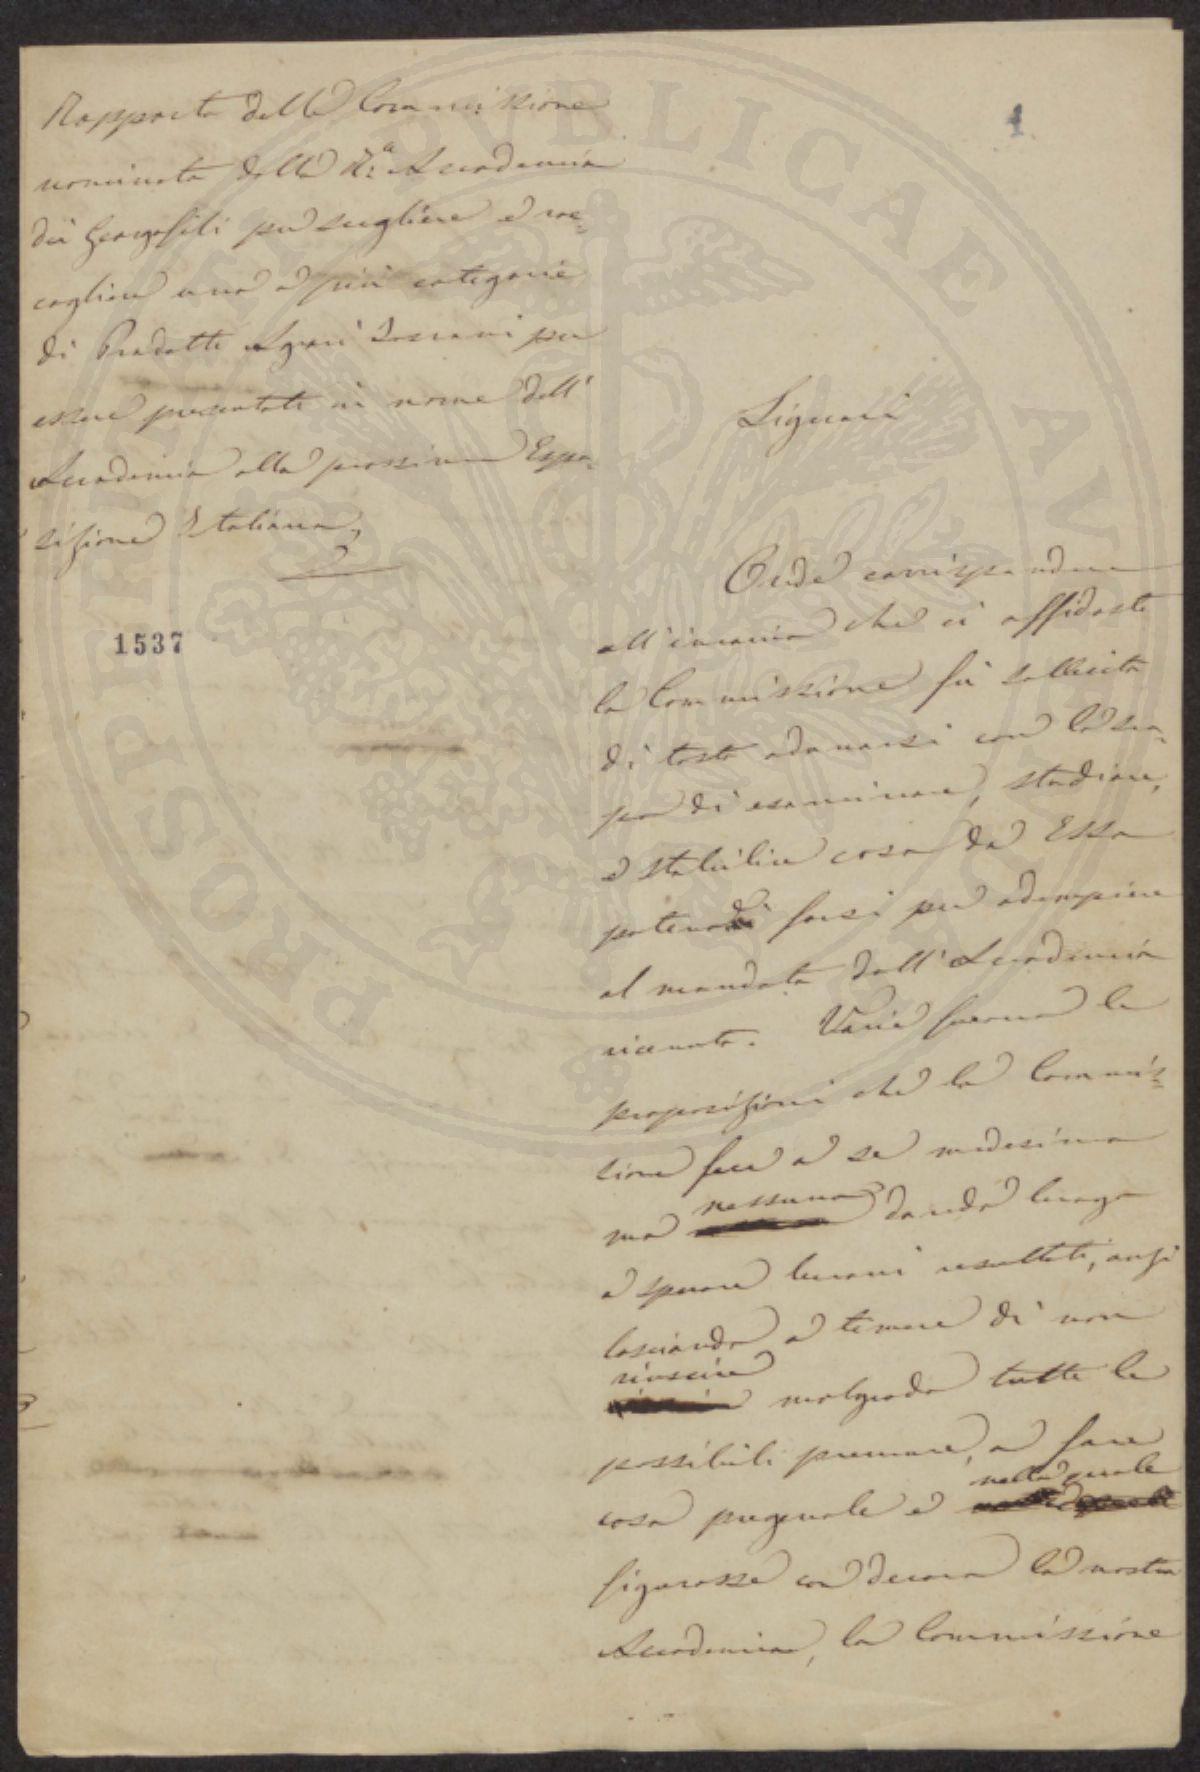 1
Rapporto della Commissione
nominata dalla R.a Accademia
dei Georgofili per scegliere e rac=
cogliere una o più categorie
di Prodotti Agrari Toscani per
essere presentati in nome dell'
Accademia alla prossima Espo=
sizione Italiana,
1537
Signori
Onde corrispondere
all'incarico che ci affidaste
la Commissione fù sollecita
di tosto adunarsi con lo sco=
po di esaminare, studiare,
e stabilire cosa da Essa
potevasi farsi per adempiere
al mandato dall'Accademia
ricevuto. Varie furono le
proposizioni che la Commis=
sione fece a se medesima
ma nessuna dando luogo
a sperare buoni resultati, anzi
lasciando a temere di non
riuscire malgrado tutte le
possibili premure, a fare
cosa pregevole e nella quale
figurasse con decoro la nostra
Accademia, la Commissione
PROSPERITATI PVBLICAE AVGENDAE